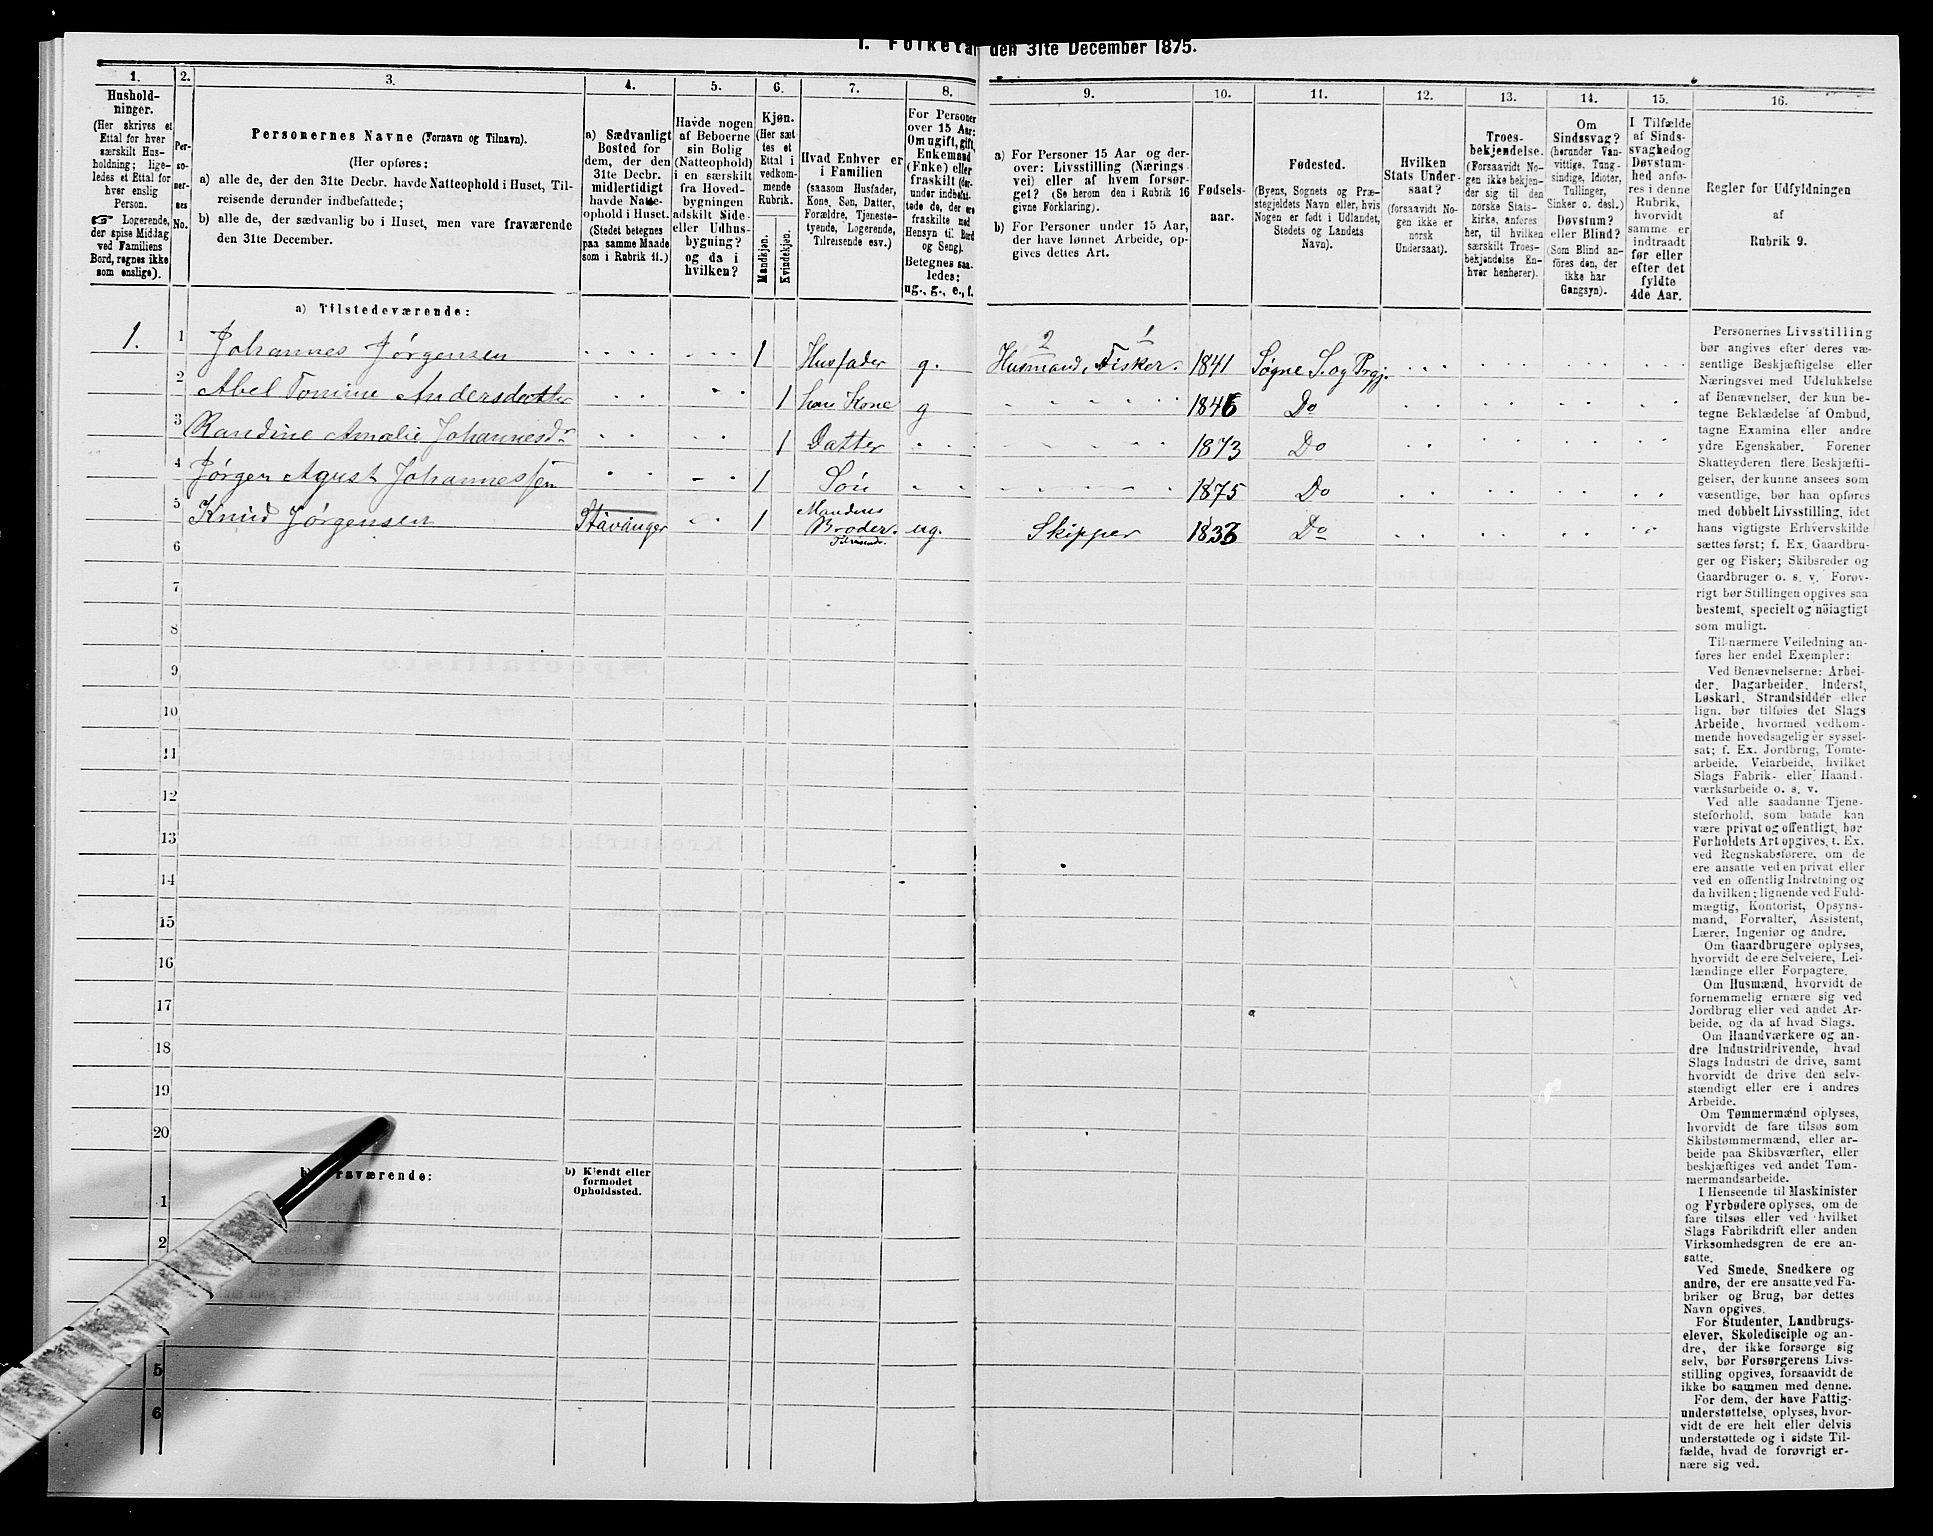 I. Folketal den 31te December 1875.
1.
Hushold-
ninger.
(Her skrives et
Ettal for hver
særskilt Hus-
holdning; lige-
ledes et Ettal for
hver enslig
Person.
☞ Logerende,
der spise Middag
ved Familiens
Bord, regnes ikke
som enslige).
2.
Per-
so-
ner-
nes
No.
3.
Personernes Navne (Fornavn og Tilnavn).
(Her opføres:
a) alle de, der den 31te Decbr. havde Natteophold i Huset, Til-
reisende derunder indbefattede;
b) alle de, der sædvanlig bo i Huset, men vare fraværende
den 31te December.
4.
a) Sædvanligt
Bosted for
dem, der den
31te Decbr.
midlertidigt
havde Natte-
ophold i Huset.
(Stedet betegnes
paa samme Maade
som i Rubrik 11.)
5.
Havde nogen
af Beboerne
sin Bolig
(Natteophold)
i en særskilt
fra Hoved-
bygningen
adskilt Side-
eller Udhus-
bygning?
og da i
hvilken?
6.
Kjøn.
(Her sæt
tes et
Ettal i
vedkom-
mende
Rubrik.
Mandkjøn.
Kvindekjøn.
7.
Hvad Enhver er
i Familien
(saasom Husfader,
Kone, Søn, Datter,
Forældre, Tjeneste-
tyende, Logerende,
Tilreisende osv.)
8.
For Personer
over 15 Aar:
Om ugift, gift,
Enkemand
(Enke) eller
fraskilt (der-
under indbefat-
tede de, der ere
fraskilte med
Hensyn til Bord
og Seng).
Betegnes saa-
ledes:
ug., g., e., f.
9.
a) For Personer 15 Aar og der-
over: Livsstilling (Nærings-
vei) eller af hvem forsør-
get? (Se herom den i Rubrik 16
givne Forklaring).
b) For Personer under 15 Aar,
der have lønnet Arbeide, op-
gives dettes Art.
10.
Fødsels-
aar.
11.
Fødested.
(Byens, Sognets og Præ-
stegjeldets Navn eller, hvis
Nogen er født i Udlandet,
Stedets og Landets
Navn).
12.
Hvilken
Stats Under-
saat?
(forsaavidt No-
gen ikke er
norsk
Undersaat).
13.
Troes-
bekjendelse.
(Forsaavidt No-
gen ikke bekjen-
der sig til den
norske Stats-
kirke, anføres
her, til hvilken
særskilt Troes-
bekjendelse En-
hver henhører).
14.
Om
Sindssvag?
(herunder Van-
vittige, Tung-
sindige, Idioter,
Tullinger,
Sinker o. desl.)
Døvstum?
eller Blind?
(Som Blind an-
føres den, der
ikke har
Gangsyn).
15.
I Tilfælde
af Sinds-
svaghed og
Døvstum-
hed anfø-
res i denne
Rubrik,
hvorvidt
samme er
indtraadt
før eller
efter det
fyldte
4de Aar.
16.
Regler for Udfyldningen
af
Rubrik 9.
a) Tilstedeværende:
1. 1 Johannes Jørgensen 1 Husfader g. Husmand, 2 Fisker. 1 1841 Søgne S. og Prgj.
2 Abel Tomine Andersdatter 1 hans Kone g 1846 Do
3 Randine Amalie Johannesdr 1 Datter 1873 Do
4 Jørgen Agust Johannessen 1 Søn 1875 Do
5 Knud Jørgensen Stavanger 1 Mandens Broder. Tilreisende. ug. Skipper 1836 Do
6
7
8
9
10
11
12
13
14
15
16
17
18
19
20
b) Fraværende:
b) Kjendt eller
formodet
Opholdssted.
1
2
5
6
Personernes Livsstilling
bør angives efter deres væ-
sentlige Beskjæftigelse eller
Næringsvei med Udelukkelse
af Benævnelser, der kun be-
tegne Beklædelse af Ombud,
tagne Examina eller andre
ydre Egenskaber. Forener
Skatteyderen flere Beskjæfti-
gelser, der kunne ansees som
væsentlige, bør han opføres
med dobbelt Livsstilling, idet
hans vigtigste Erhvervskilde
sættes først; f. Ex. Gaardbru-
ger og Fisker; Skibsreder og
Gaardbruger o. s. v. Forøv-
rigt bør Stillingen opgives saa
bestemt, specielt og nøiagtigt
som muligt.
Til nærmere Veiledning an-
føres her endel Exempler:
Ved Benævnelserne: Arbei-
der, Dagarbeider, Inderst,
Løskarl, Strandsidder eller
lign. bør tilføies det Slags
Arbeide, hvormed vedkom-
mende hovedsagelig er syssel-
sat; f. Ex. Jordbrug, Tomte-
arbeide, Veiarbeide, hvilket
Slags Fabrik- eller Haand-
værksarbeide o. s. v.
Ved alle saadanne Tjene-
steforhold, som baade kan
være privat og offentligt, bør
Forholdets Art opgives, f. Ex.
ved Regnskabsførere, om de
ere ansatte ved en privat eller
ved en offentlig Indretning og
da hvilken; lignende ved Fuld-
mægtig, Kontorist, Opsyns-
mand, Forvalter, Assistent,
Lærer, Ingeniør og andre.
Om Gaardbrugere oplyses,
hvorvidt de ere Selveiere, Lei-
lændinge eller Forpagtere.
Om Husmænd, hvorvidt de
fornemmelig ernære sig ved
Jordbrug eller ved andet Ar-
beide, og da af hvad Slags.
Om Haandværkere og an-
dre Industridrivende, hvad
Slags Industri de drive, samt
hvorvidt de drive den selv-
stændigt eller ere i andres
Arbeide.
Om Tømmermænd oplyses,
hvorvidt de fare tilsøs som
Skibstømmermænd, eller ar-
beide paa Skibsværfter, eller
beskjæftiges ved andet Tøm-
mermandsarbeide.
I Henseende til Maskinister
og Fyrbødere oplyses, om de
fare tilsøs eller ved hvilket
Slags Fabrikdrift eller anden
Virksomhedsgren de ere an-
satte.
Ved Smede, Snedkere og
andre, der ere ansatte ved Fa-
briker og Brug, bør dettes
Navn opgives.
For Studenter, Landbrugs-
elever, Skoledisciple og an-
dre, der ikke forsørge sig
selv, bør Forsørgerens Livs-
stilling opgives, forsaavidt de
ikke bo sammen med denne.
For dem, der have Fattig-
understøttelse, oplyses, hvor-
vidt de ere helt eller delvis
understøttede og i sidste Til-
fælde, hvad de forøvrigt er-
nære sig ved.